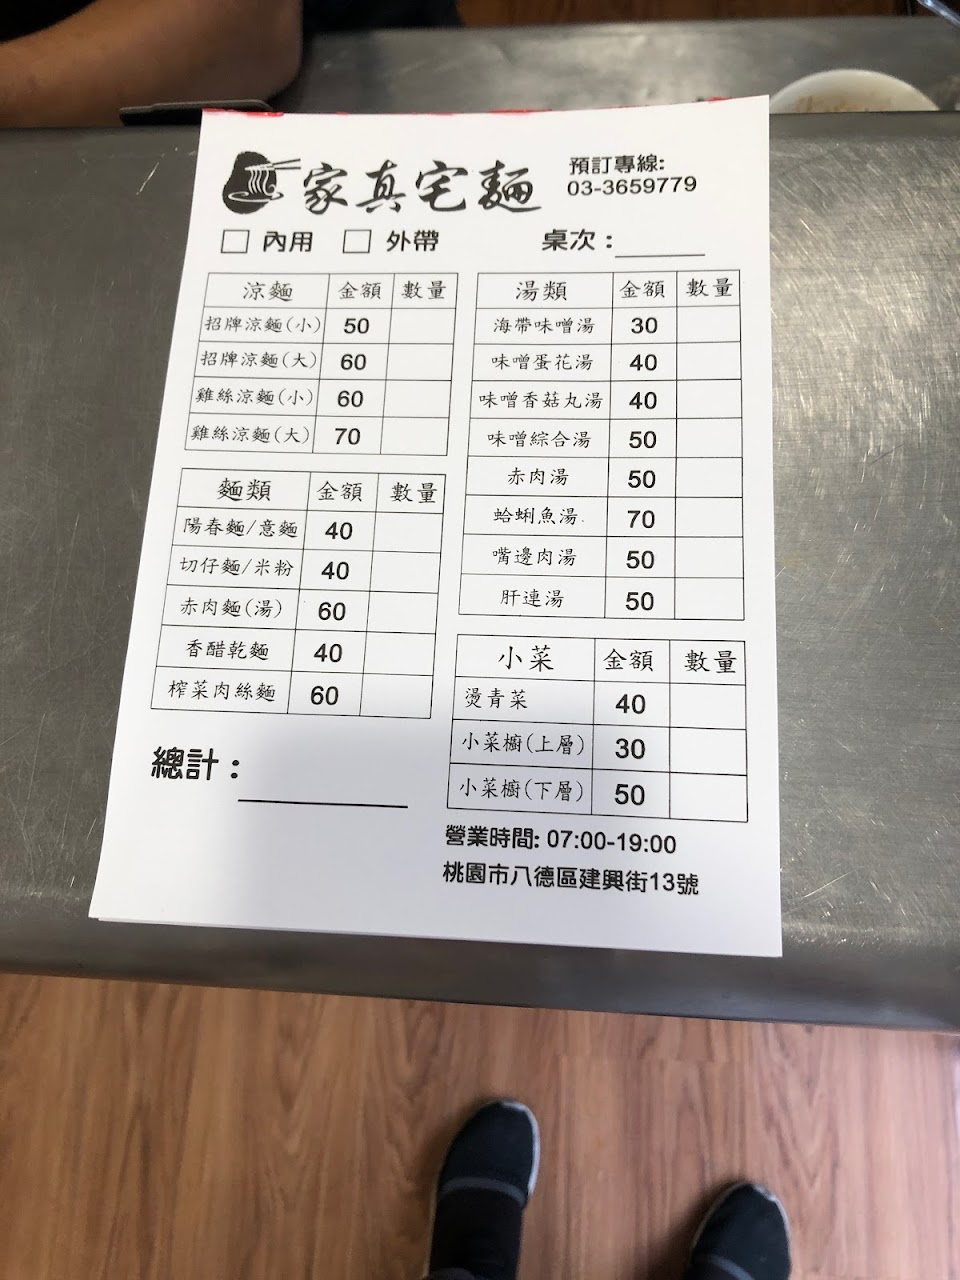 家真宅麵
預訂專線:
03-3659779
□ 內用 □ 外帶 桌次：
涼麵 金額 數量
招牌涼麵(小) 50
招牌涼麵(大) 60
雞絲涼麵(小) 60
雞絲涼麵(大) 70
麵類 金額 數量
陽春麵/意麵 40
切仔麵/米粉 40
赤肉麵(湯) 60
香醋乾麵 40
榨菜肉絲麵 60
總計：
湯類 金額 數量
海帶味噌湯 30
味噌蛋花湯 40
味噌香菇丸湯 40
味噌綜合湯 50
赤肉湯 50
蛤蜊魚湯 70
嘴邊肉湯 50
肝連湯 50
小菜 金額 數量
燙青菜 40
小菜櫥(上層) 30
小菜櫥(下層) 50
營業時間: 07:00-19:00
桃園市八德區建興街13號